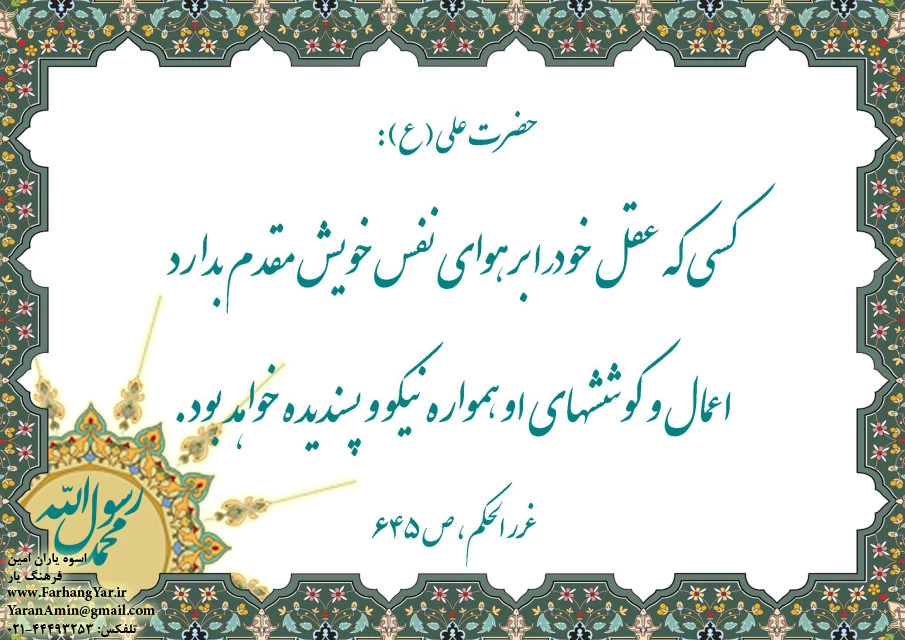 حضرت علی (ع):
کسی که عقل خود را بر هوای نفس خویش مقدم بدارد
اعمال و کوششهای او همواره نیکو و پسندیده خواهد بود.
غرر الحکم، ص ۶۴۵
محمد رسول الله
اسوه یاران امین
فرهنگ یار
www.FarhangYar.ir
YaranAmin@gmail.com
تلفکس: ۴۴۴۹۳۲۵۳-۰۲۱